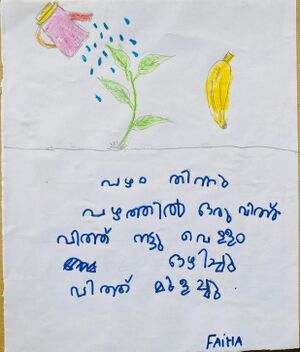 പഴം തിന്നു
പഴത്തിൽ ഒരു വിത്ത്
വിത്ത് നട്ടു വെള്ളം
ഒഴിച്ചു
വിത്ത് മുളച്ചു
FAIHA